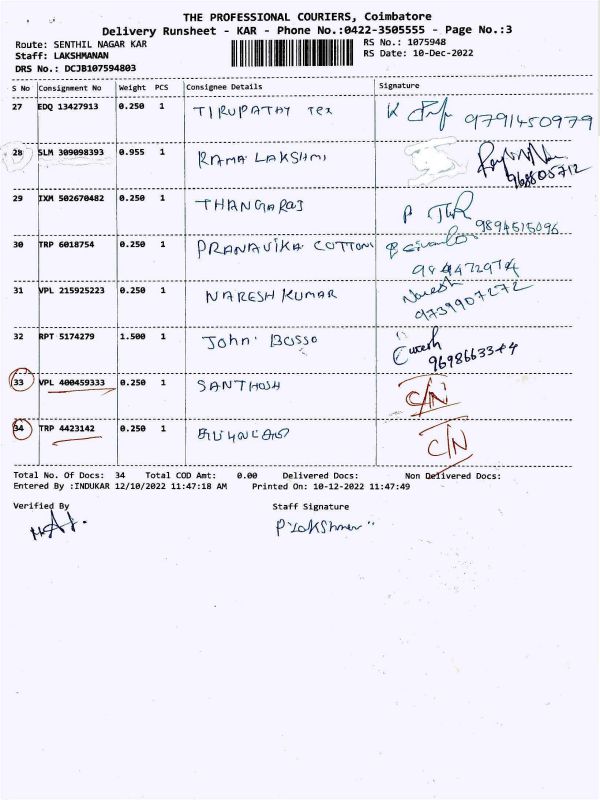 THE PROFESSIONAL COURIERS, Coimbatore
Delivery Runsheet - KAR - Phone No.:0422-3505555 - Page No.:3
Route: SENTHIL NAGAR KAR RS No.: 1075948
Staff: LAKSHMANAN RS Date: 10-Dec-2022
DRS No.: DCJB107594803
S No Consignment No Weight PCS Consignee Details Signature
27 EDQ 13427913 0.250 1 TIRUPATHY Tex K 9791450979
28 SLM 309098393 0.955 1 RAMA LAKSHMI
29 IXM 502670482 0.250 1 THANGARAJ P 9894515096
30 TRP 6018754 0.250 1 PRANAVIKA COTTONS
31 VPL 215925223 0.250 1 NARESH KUMAR Naresh 9739907272
32 RPT 5174279 1.500 1 John Bosso
33 VPL 400459333 0.250 1 SANTHOSH C/N
34 TRP 4423142 0.250 1 C/N
Total No. Of Docs: 34 Total COD Amt: 0.00 Delivered Docs: Non Delivered Docs:
Entered By :INDUKAR 12/10/2022 11:47:18 AM Printed On: 10-12-2022 11:47:49
Verified By Staff Signature